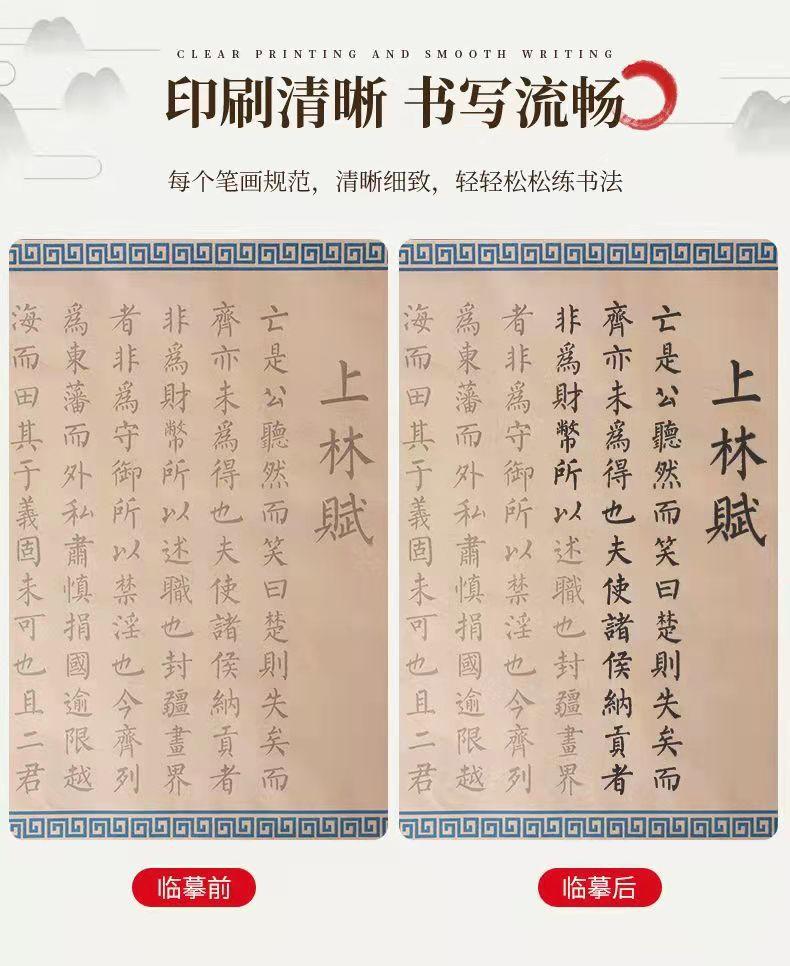 CLEAR PRINTING AND SMOOTH WRITING
印刷清晰 书写流畅
每个笔画规范，清晰细致，轻轻松松练书法
上林賦
亡是公聽然而笑曰楚則失矣而
齊亦未爲得也夫使諸侯納貢者
非爲財幣所以述職也封疆畫界
者非爲守御所以禁淫也今齊列
爲東藩而外私肅慎捐國逾限越
海而田其于義固未可也且二君
上林賦
亡是公聽然而笑曰楚則失矣而
齊亦未爲得也夫使諸侯納貢者
非爲財幣所以述職也封疆畫界
者非爲守御所以禁淫也今齊列
爲東藩而外私肅慎捐國逾限越
海而田其于義固未可也且二君
临摹前
临摹后